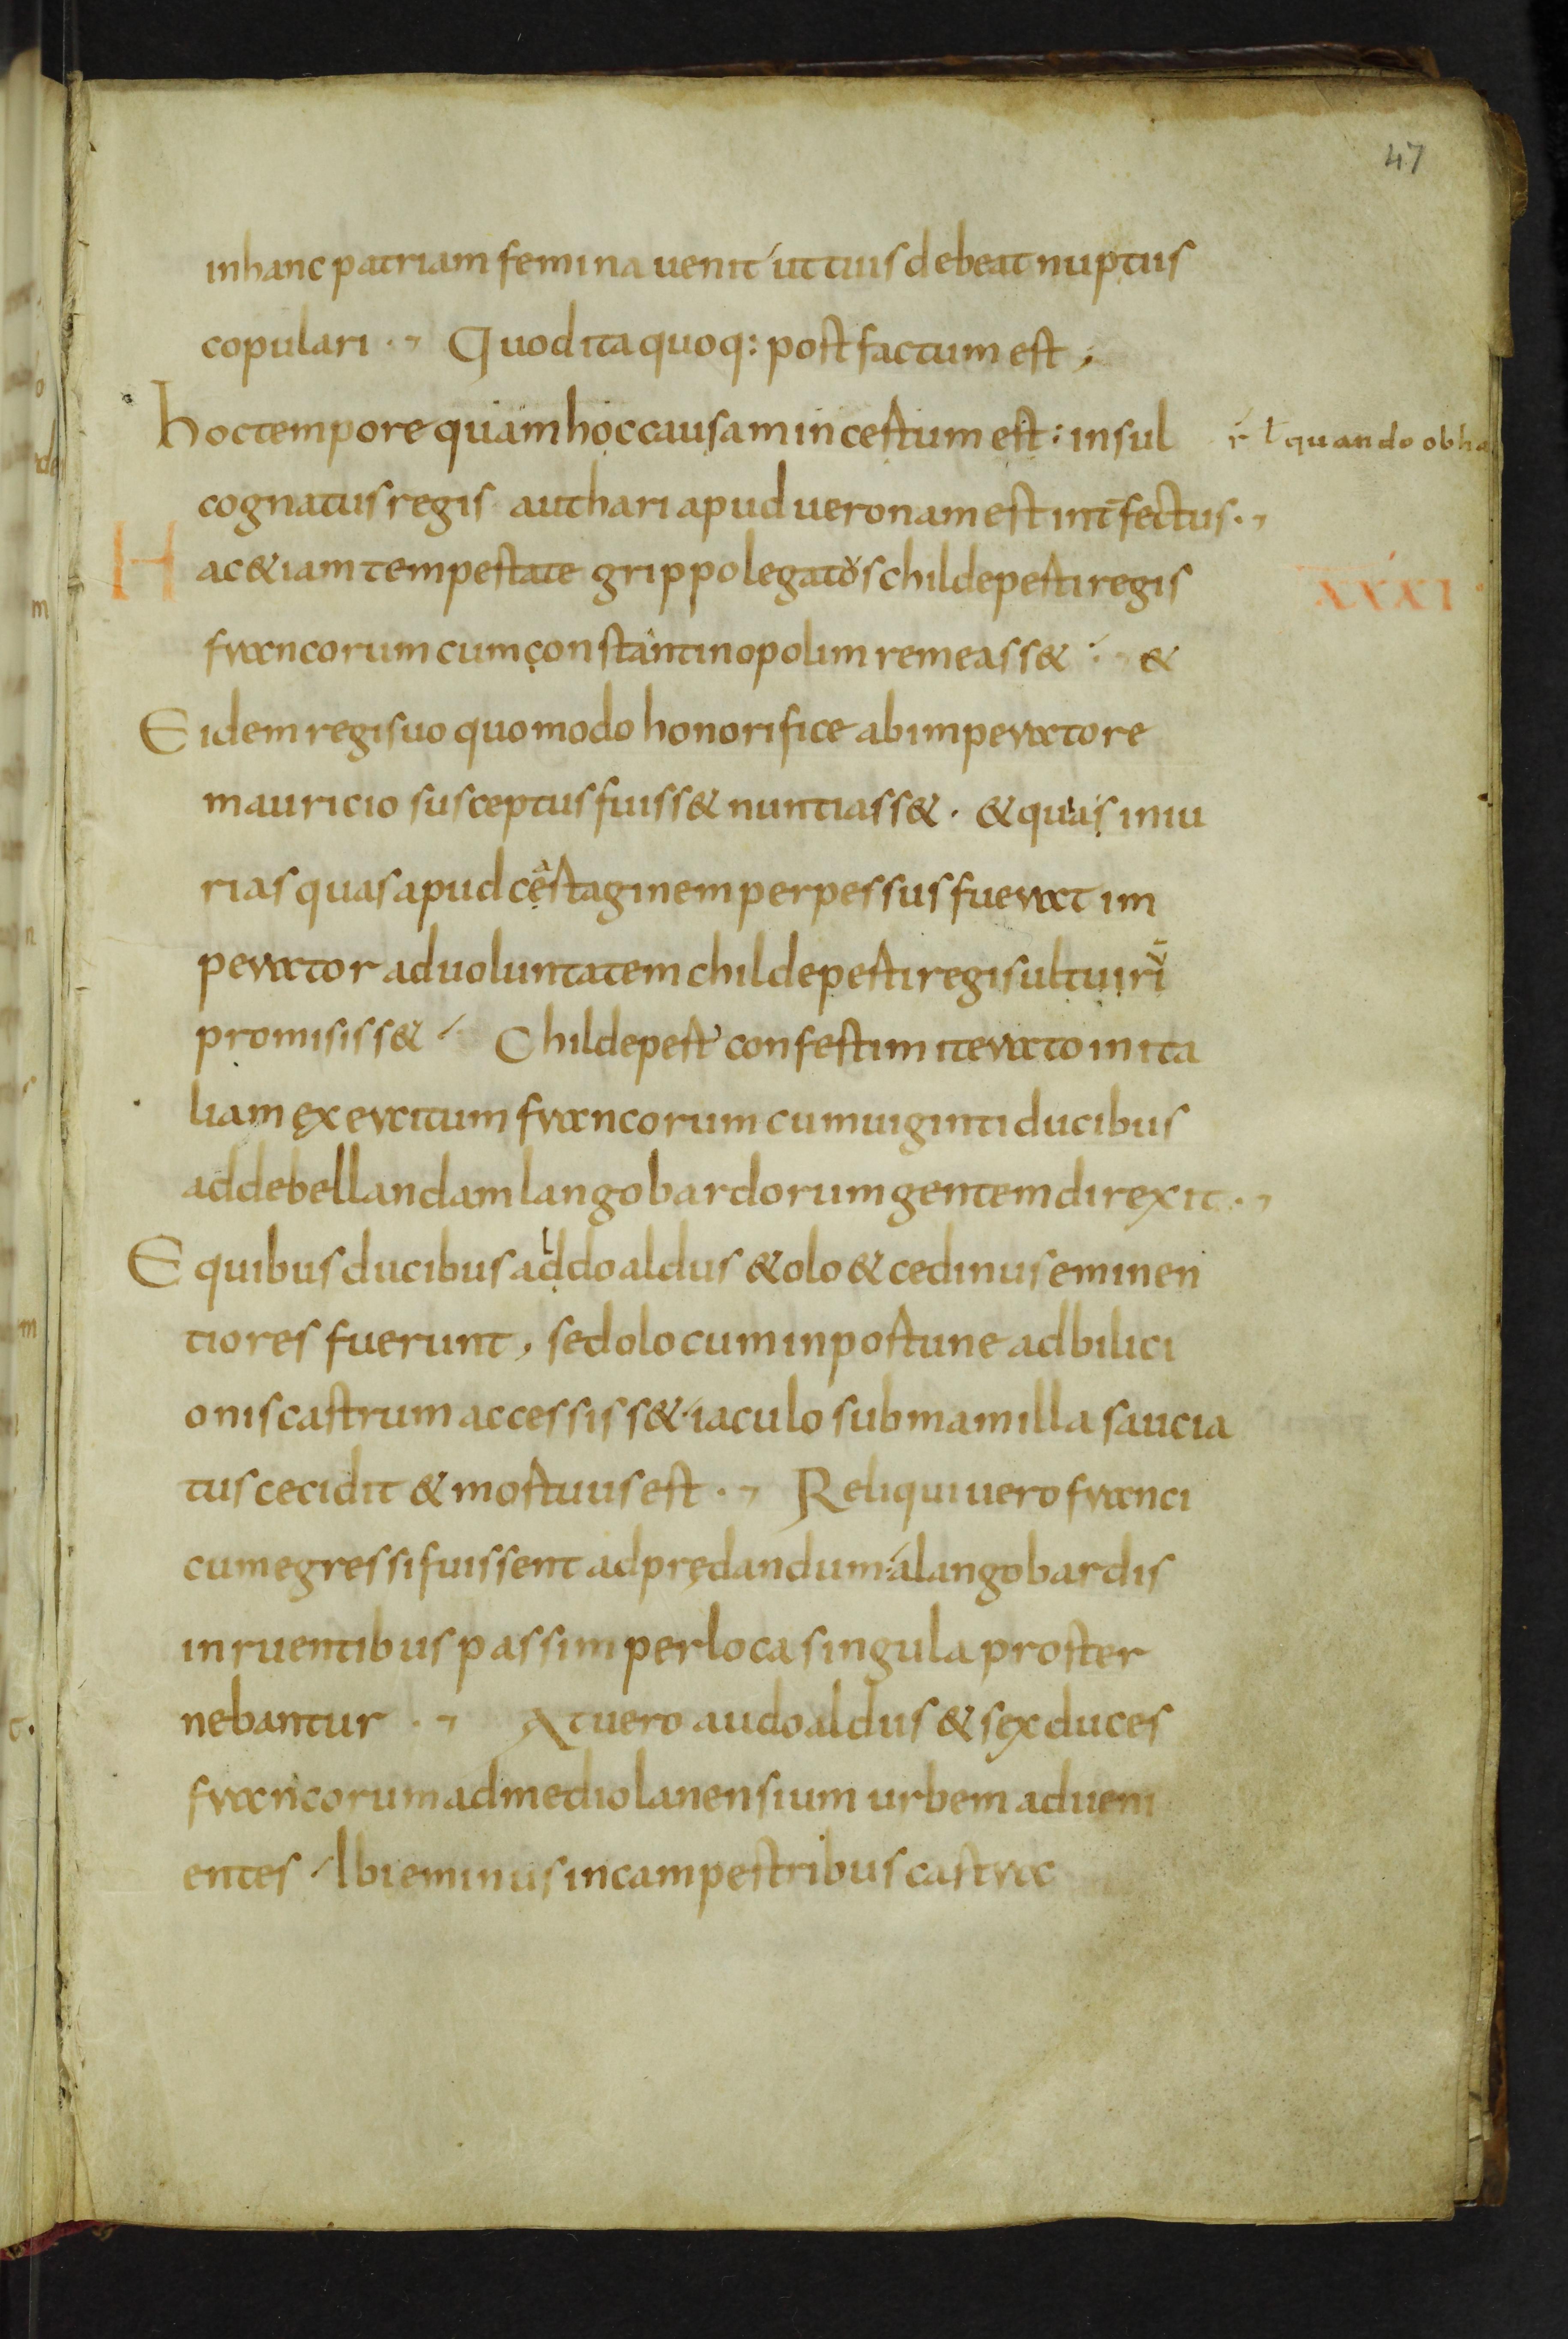 47
in hanc patriam femina uenit ut tuis debeat nuptus
copulari ·, Quod ita quoq: post factum est ,
hoc tempore quam hoc causam incestum est : insul
ŕ ł quando ob ha
cognatus regis authari apud ueronam est int̄fectus ·,
Hac &iam tempestate grippo legatos childeperti regis
XXXI
francorum cum constantinopolim remeass& &
Eidem regi suo quomodo honorifice ab imperatore
mauricio susceptus fuiss& nuntiass& · & quas iniu
rias quas apud certaginem perpessus fuerat im
perator ad uoluntatem childeperti regis ultuiri
promisiss& Childepert confestim iterato in ita
liam exercitum francorum cum uiginti ducibus
ad debellandam langobardorum gentem direxit ·,
E quibus ducibus addoaldus & olo & cedinus eminen
tiores fuerunt , sed olo cum inportune ad bilici
onis castrum accessiss& iaculo sub mamilla saucia
tus cecidit & mortuus est ·, Reliqui uero franci
cum egressi fuissent ad prędandum a langobardis
inruentibus passim per loca singula proster
nebantur ·, At uero audoaldus & sex duces
francorum ad mediolanensium urbem adueni
entes Ibi eminus in campestribus castra